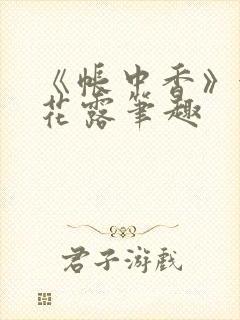 《帐中香》
花露笔趣
君子游戏